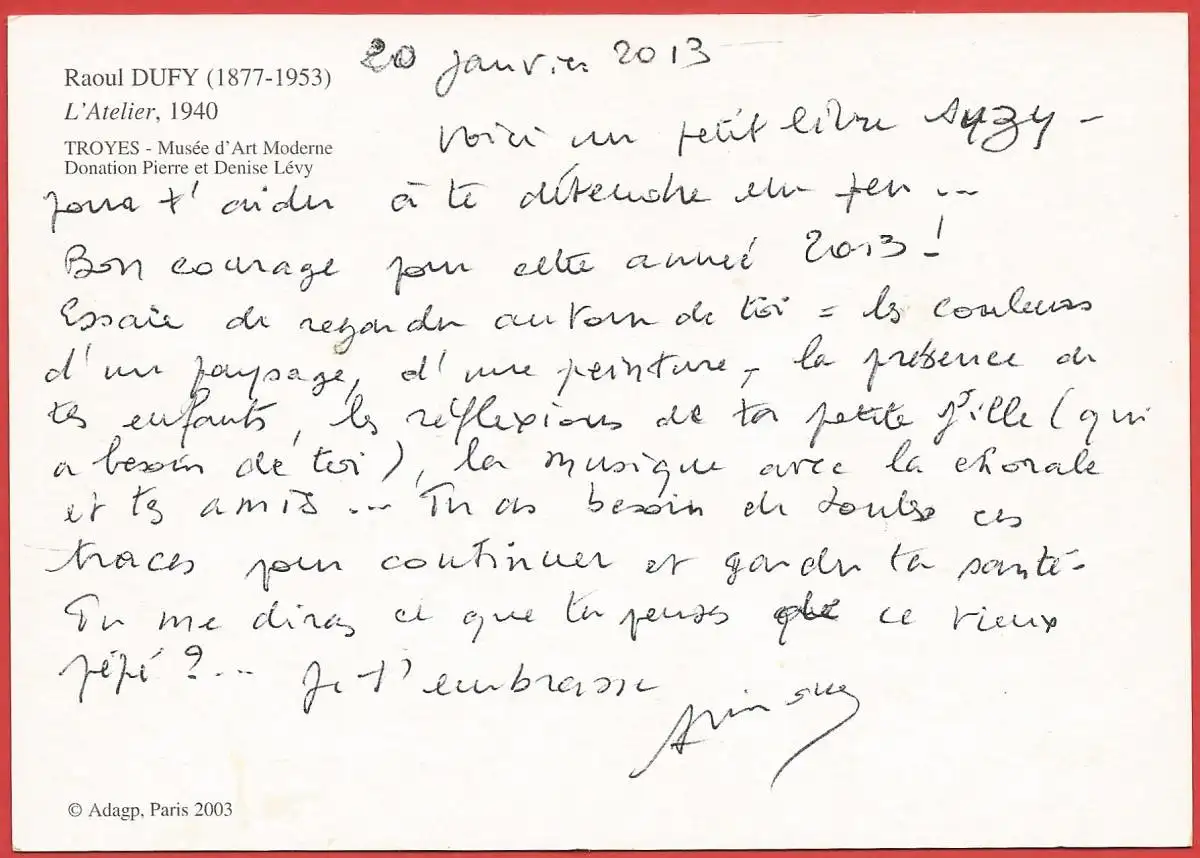 20 janvier 2013
Raoul DUFY (1877-1953)
L'Atelier, 1940
TROYES - Musée d'Art Moderne
Donation Pierre et Denise Lévy
Voici un petit livre Suzy -
pour t'aider à te détendre un peu ...
Bon courage pour cette année 2013 !
Essaie de regarder autour de toi = les couleurs
d'un paysage, d'une peinture, la présence de
tes enfants, les réflexions de ta petite fille (qui
a besoin de toi), la musique avec la chorale
et tes amis ... Tu as besoin de toutes ces
traces pour continuer et garder ta santé -
Tu me diras ce que tu penses de ce vieux
pépé ? ... Je t'embrasse
© Adagp, Paris 2003